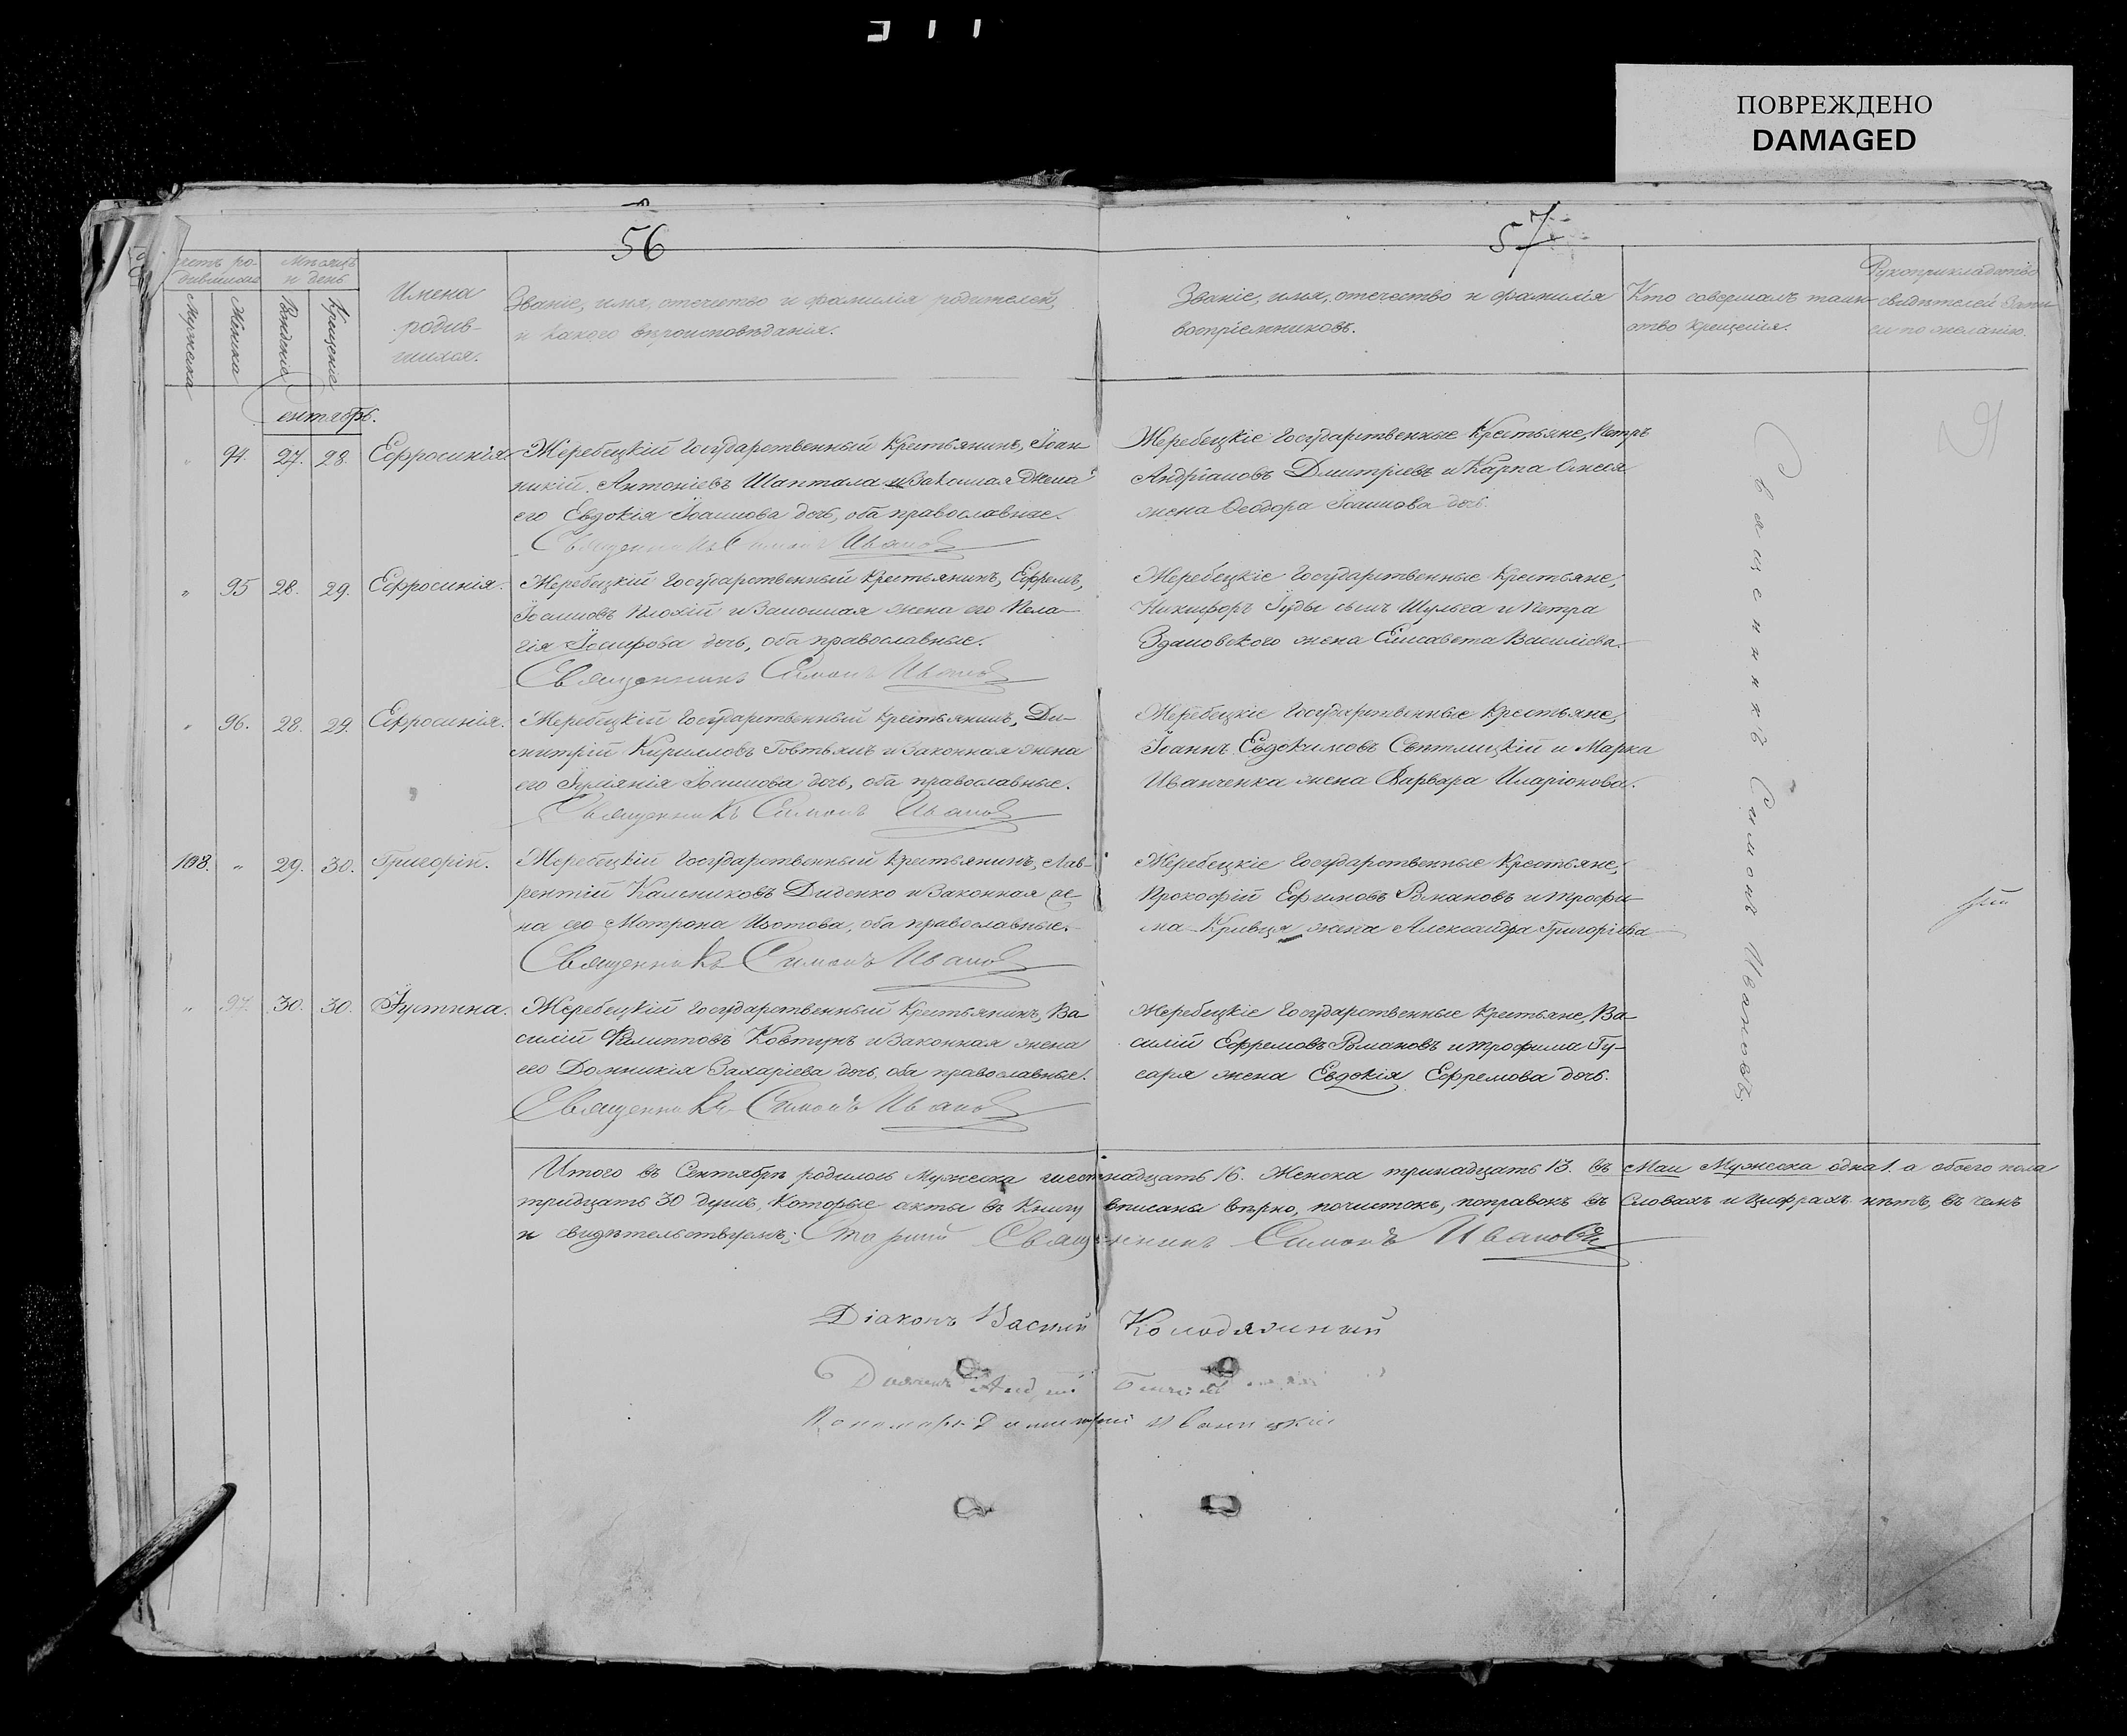 ПОВРЕЖДЕНО
DAMAGED
56
57
Мѣсяцъ
и день
Мужеска
Женска
Рожденіе
Крещеніе
Имена
родив-
шихся.
Званіе, имя, отечество и фамилія родителей,
и какого вѣроисповѣданія.
Званіе, имя, отечество и фамилія
воспріемниковъ.
Кто совершалъ таин-
ство крещенія.
Рукоприкладство
свидѣтелей записи
по желанію.
Сентябрь.
" 94. 27. 28. Ефросинія.
Жеребецкій Государственный Крестьянинъ, Іоан-
никій Антоніевъ Шаптала и Законная Жена
его Евдокія Іоаннова дочь, оба православные.
Священникъ Симонъ Ивановъ
Жеребецкіе Государственные Крестьяне, Петръ
Андріановъ Дмитріевъ и Карпа
жена Ѳеодора Іоаннова дочь.
" 95 28. 29. Ефросинія.
Жеребецкій Государственный Крестьянинъ, Ефремъ,
Іоанновъ Плохій и Законная жена его Пела-
гія Іосифова дочь, оба православные.
Священникъ Симонъ Ивановъ
Жеребецкіе Государственные Крестьяне,
Никифоръ Іуды сынъ Шульга и Петра
Здановского жена Елисавета Василіева.
" 96. 28. 29. Ефросинія.
Жеребецкій Государственный Крестьянинъ, Ди-
митрій Кирилловъ Товтьянъ и Законная жена
его Іуліянія Іоаннова дочь, оба православные.
Священникъ Симонъ Ивановъ
Жеребецкіе Государственные Крестьяне,
Іоаннъ Евдокимовъ Свѣтлицкій и Марка
Иванченка жена Варвара Иларіонова.
108. " 29. 30. Григорій.
Жеребецкій Государственный Крестьянинъ, Лав-
рентій Калениковъ Диденко и Законная же-
на его Мотрона Изотова, оба православные.
Священникъ Симонъ Ивановъ
Жеребецкіе Государственные Крестьяне,
Прокофій Ефимовъ Романовъ и Трофи-
ма Кривця жена Александра Григоріева
" 97. 30. 30. Іустина.
Жеребецкій Государственный Крестьянинъ, Ва-
силій Филипповъ Ковтунъ и Законная жена
его Домникія Захаріева дочь, оба православные.
Священникъ Симонъ Ивановъ
Жеребецкіе Государственные Крестьяне, Ва-
силій Ефремовъ Романовъ и Трофима Гу-
саря жена Евдокія Ефремова дочь.
Священникъ Симонъ Ивановъ.
Итого въ Сентябрѣ родилось Мужеска шестнадцать 16. Женска тринадцать 13. въ Маи Мужеска одна 1. а обоего пола
тридцать 30 душъ, Которые акты въ Книгу вписаны вѣрно, почистокъ, поправокъ въ Словахъ и Цифрахъ нѣтъ, въ чемъ
и свидѣтельствуемъ: Старшій Священникъ Симонъ Ивановъ
Діаконъ Василій Колодяжный
Пономарь Димитрій Иваницкій